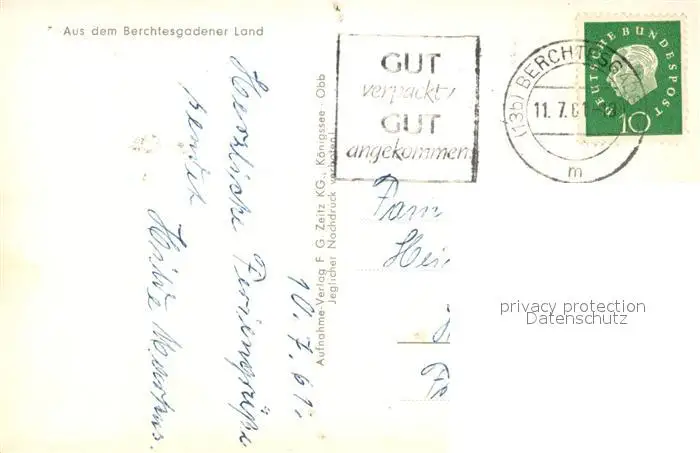 Aus dem Berchtesgadener Land
10.7.61.
Herzliche Feriengrüße
sendet
Aufnahme-Verlag F. G. Zeitz KG., Königssee - Obb
Jeglicher Nachdruck verboten!
GUT
verpackt,
GUT
angekommen
(13b) BERCHTESGADEN
11.7.61
m
DEUTSCHE BUNDESPOST
10
Fam
Hei
privacy protection
Datenschutz